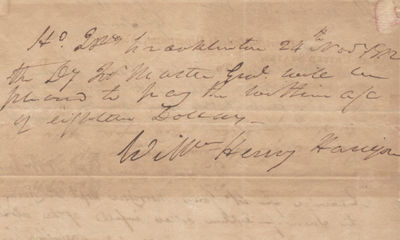 Hd. Qrs. Franklinton 24th Nov. 1812
the Dy Qr Master Genl. will be
pleased to pay the within a/c
of eighteen Dollars,—
Willm. Henry Harrison